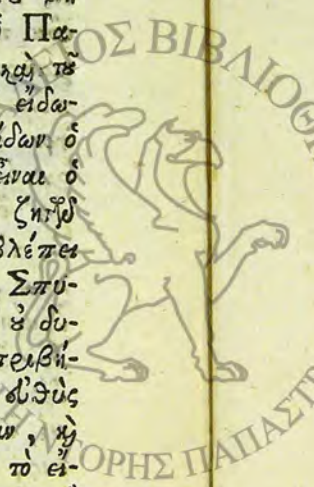 Πα-
καὶ τȣ
εἰδω-
ίδων ὁ
εἶναι ὁ
ζητεῖ
βλέπει
Σπυ-
ȣ δυ-
τριβή-
εὐθὺς
ων , κὶ
τὸ εἴ-
ΕΙΟΣ ΒΙΒΛΙΟΘ
ΗΓΟΡΗΣ ΠΑΠΑΣΤΡ